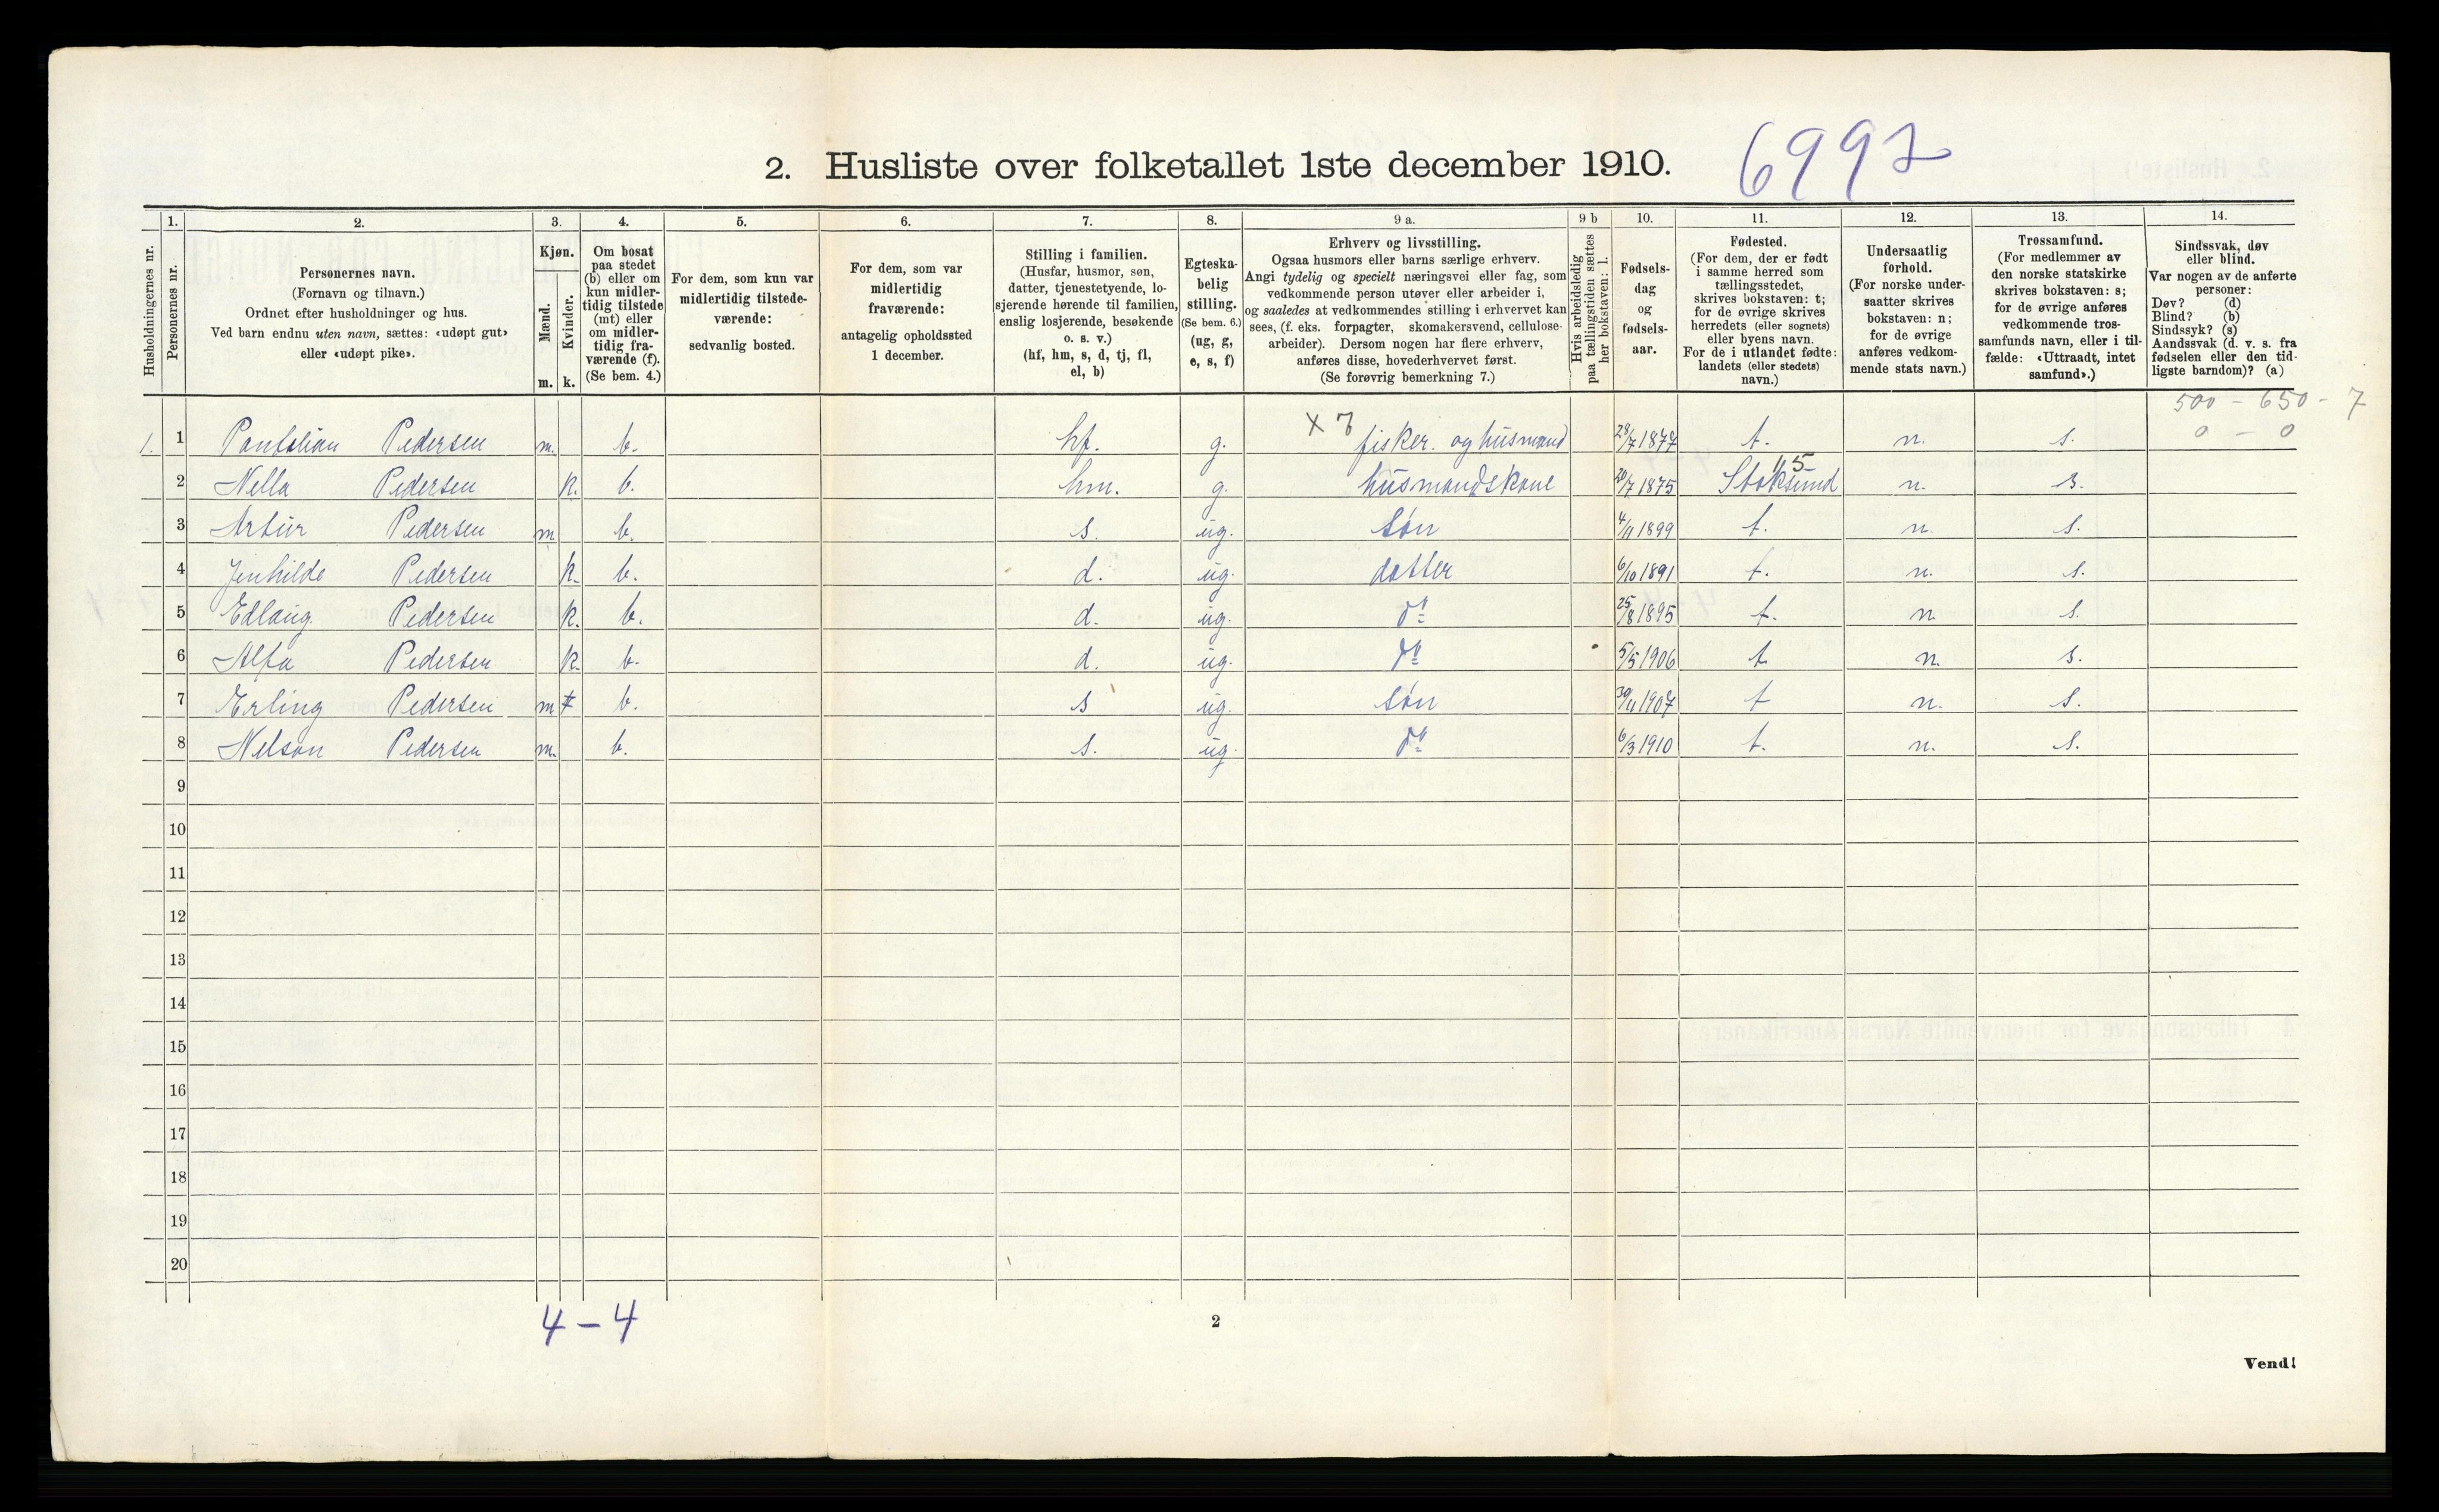 2. Husliste over folketallet 1ste december 1910.
6992
1. 2. 3. 4. 5. 6. 7. 8. 9 a. 9 b 10. 11. 12. 13. 14.
Husholdningernes nr.
Personernes nr.
Personernes navn.
(Fornavn og tilnavn.)
Ordnet efter husholdninger og hus.
Ved barn endnu uten navn, sættes: «udøpt gut»
eller «udøpt pike».
Kjøn.
Mænd.
Kvinder.
m. k.
Om bosat
paa stedet
(b) eller om
kun midler-
tidig tilstede
(mt) eller
om midler-
tidig fra-
værende (f).
(Se bem. 4.)
For dem, som kun var
midlertidig tilstede-
værende:
sedvanlig bosted.
For dem, som var
midlertidig
fraværende:
antagelig opholdssted
1 december.
Stilling i familien.
(Husfar, husmor, søn,
datter, tjenestetyende, lo-
sjerende hørende til familien,
enslig losjerende, besøkende
o. s. v.)
(hf, hm, s, d, tj, fl,
el, b)
Egteska-
belig
stilling.
(Se bem. 6.)
(ug, g,
e, s, f)
Erhverv og livsstilling.
Ogsaa husmors eller barns særlige erhverv.
Angi tydelig og specielt næringsvei eller fag, som
vedkommende person utøver eller arbeider i,
og saaledes at vedkommendes stilling i erhvervet kan
sees, (f. eks. forpagter, skomakersvend, cellulose-
arbeider). Dersom nogen har flere erhverv,
anføres disse, hovederhvervet først.
(Se forøvrig bemerkning 7.)
Hvis arbeidsledig
paa tællingstiden sættes
her bokstaven: l.
Fødsels-
dag
og
fødsels-
aar.
Fødested.
(For dem, der er født
i samme herred som
tællingsstedet,
skrives bokstaven: t;
for de øvrige skrives
herredets (eller sognets)
eller byens navn.
For de i utlandet fødte:
landets (eller stedets)
navn.)
Undersaatlig
forhold.
(For norske under-
saatter skrives
bokstaven: n;
for de øvrige
anføres vedkom-
mende stats navn.)
Trossamfund.
(For medlemmer av
den norske statskirke
skrives bokstaven: s;
for de øvrige anføres
vedkommende tros-
samfunds navn, eller i til-
fælde: «Uttraadt, intet
samfund».)
Sindssvak, døv
eller blind.
Var nogen av de anførte
personer:
Døv? (d)
Blind? (b)
Sindssyk? (s)
Aandssvak (d. v. s. fra
fødselen eller den tid-
ligste barndom)? (a)
500 - 650 - 7
0 - 0
X 7
1. 1 Pedersen m. b. hf. g. fisker. og husmand 28/7 1877 t. n. s.
115
2 Nella Pedersen k. b. hm. g. husmandskone 20/7 1875 Stoksund n. s.
3 Artur Pedersen m b. s. ug. søn 4/11 1899 t. n. s.
4 Jenhilde Pedersen k. b. d. ug. datter 6/10 1891 t. n. s.
5 Edlaug Pedersen k. b. d. ug. do 25/8 1895 t. n. s.
6 Alfa Pedersen k. b. d. ug. do 5/5 1906 t n. s.
7 Erling Pedersen m b. s ug. søn 30/11 1907 t n. s.
8 Nelson Pedersen m. b. s. ug. do 6/3 1910 t. n. s.
9
10
11
12
13
14
15
16
17
18
19
20
4 - 4
2
Vend!